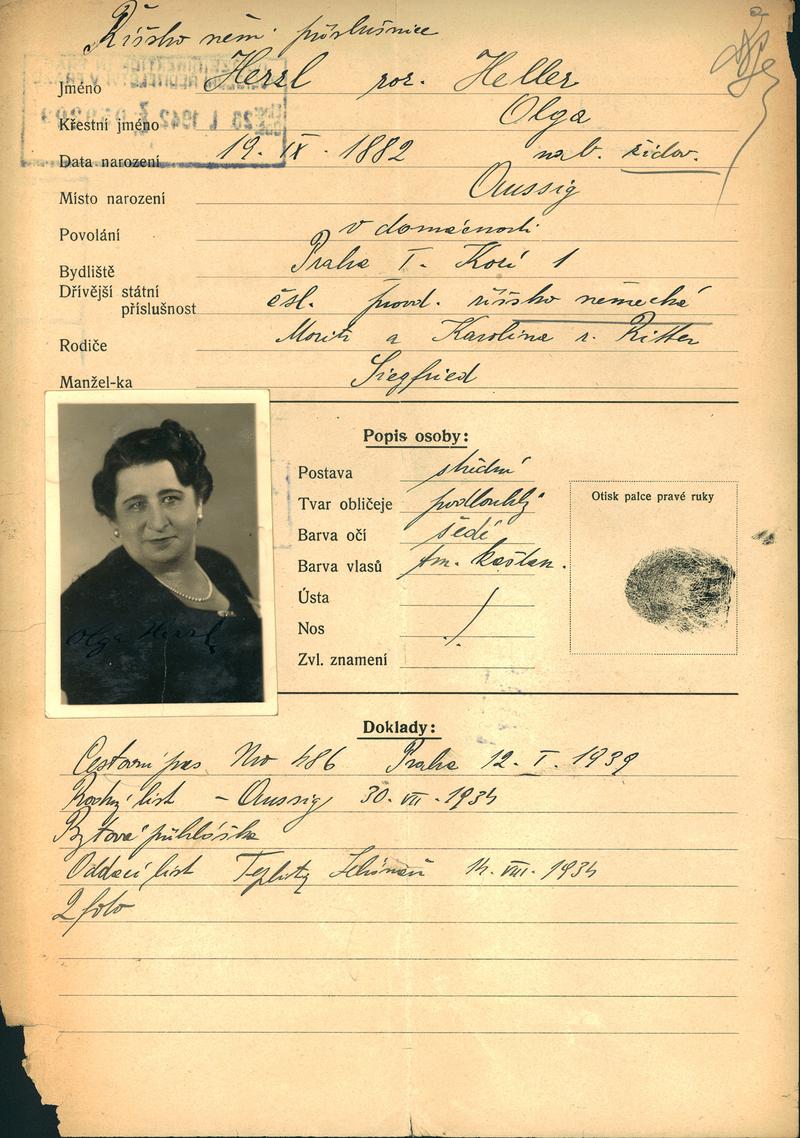 Říšsko něm. příslušnice
Jméno Herzl roz. Heller
Křestní jméno Olga
Data narození 19. IX. 1882 náb. židov.
Místo narození Aussig
Povolání v domácnosti
Bydliště Praha I. Kozí 1
Dřívější státní
příslušnost čsl. provd. říšsko německá
Rodiče Moritz a Karolina r. Ritter
Manžel-ka Siegfried
Popis osoby:
Postava střední
Tvar obličeje podlouhlý
Barva očí šedé
Barva vlasů tm. kaštan.
Ústa
Nos
Zvl. znamení
Otisk palce pravé ruky
Olga Herzl
Doklady:
Cestovní pas No 486 Praha 12. I. 1939
Rodný list – Aussig 30. VII. 1934
Bytová přihláška
Oddací list Teplitz Schönau 14. VIII. 1934
2 foto